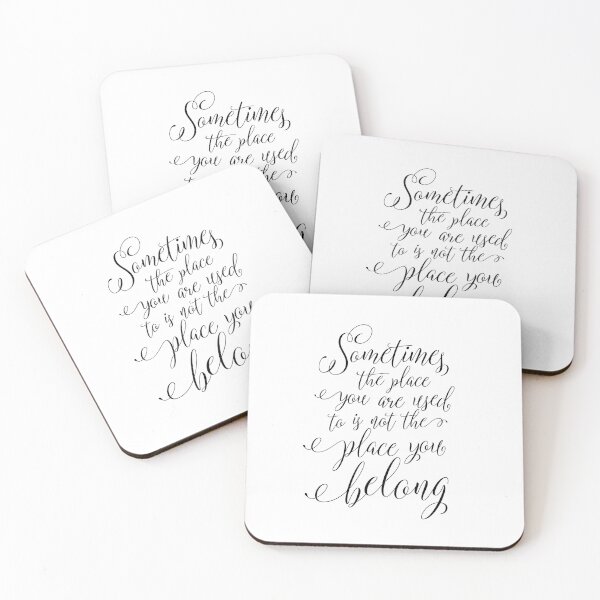 Sometimes,
the place
you are used
to is not the
you
Sometimes,
the place
you are used
to is not the
place you
Sometimes,
the place
you are used
to is not the
place you
belong
Sometimes,
the place
you are used
to is not the
place you
belong